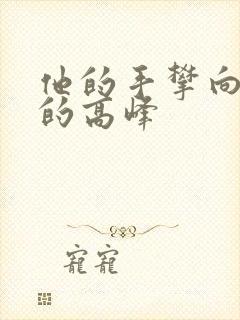 他的手攀向
的高峰
宠宠